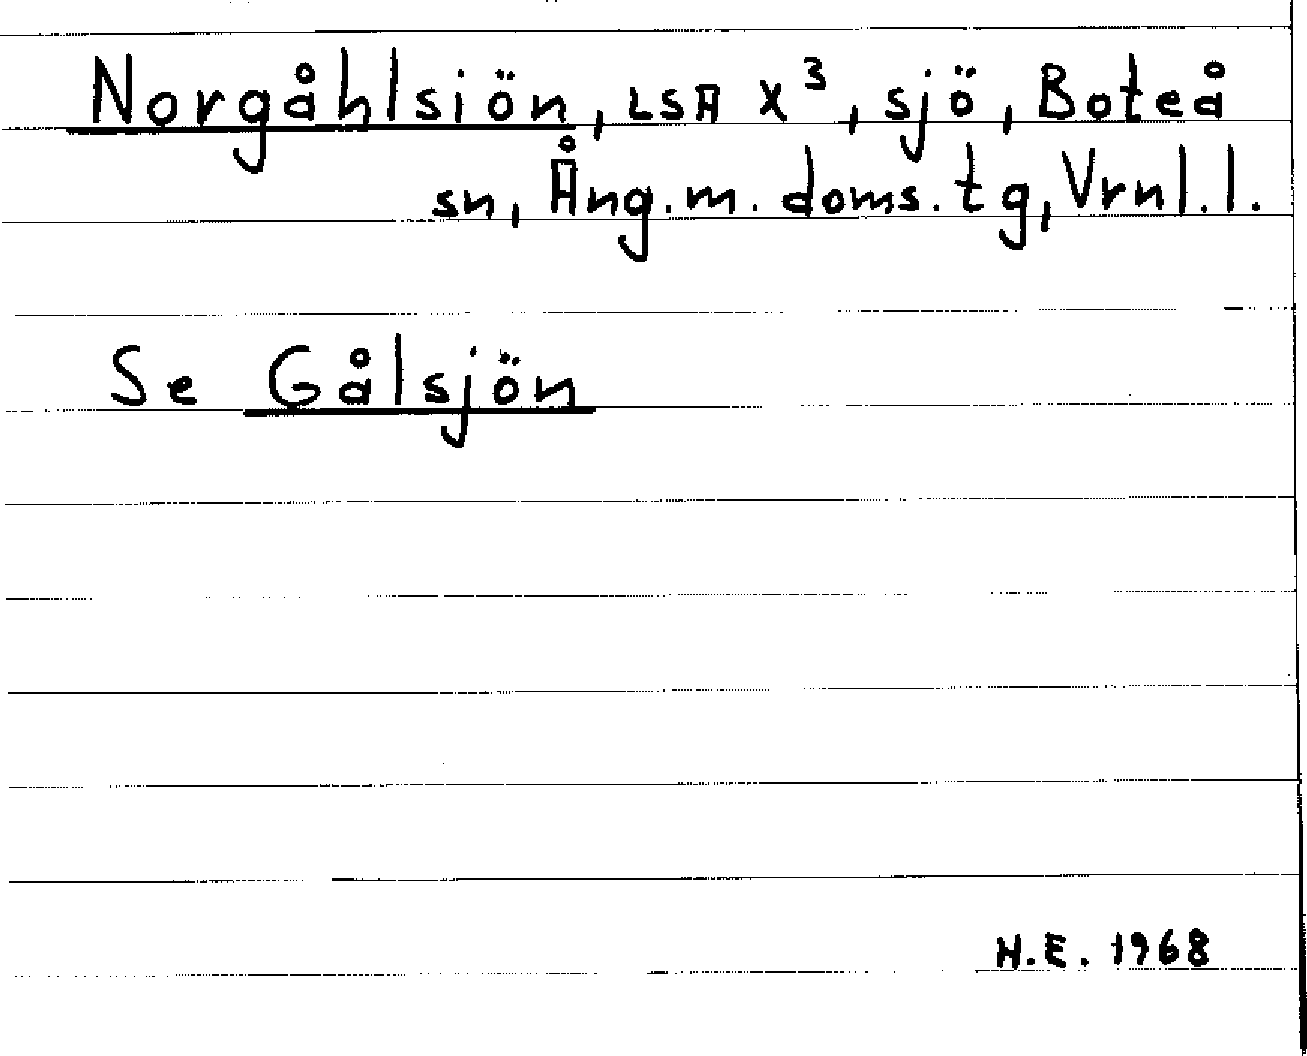 Norgåhlsiön, LSA X³, sjö, Boteå
sn, Ång.m. doms.tg, Vrnl.l.
Se Gålsjön
H.E. 1968